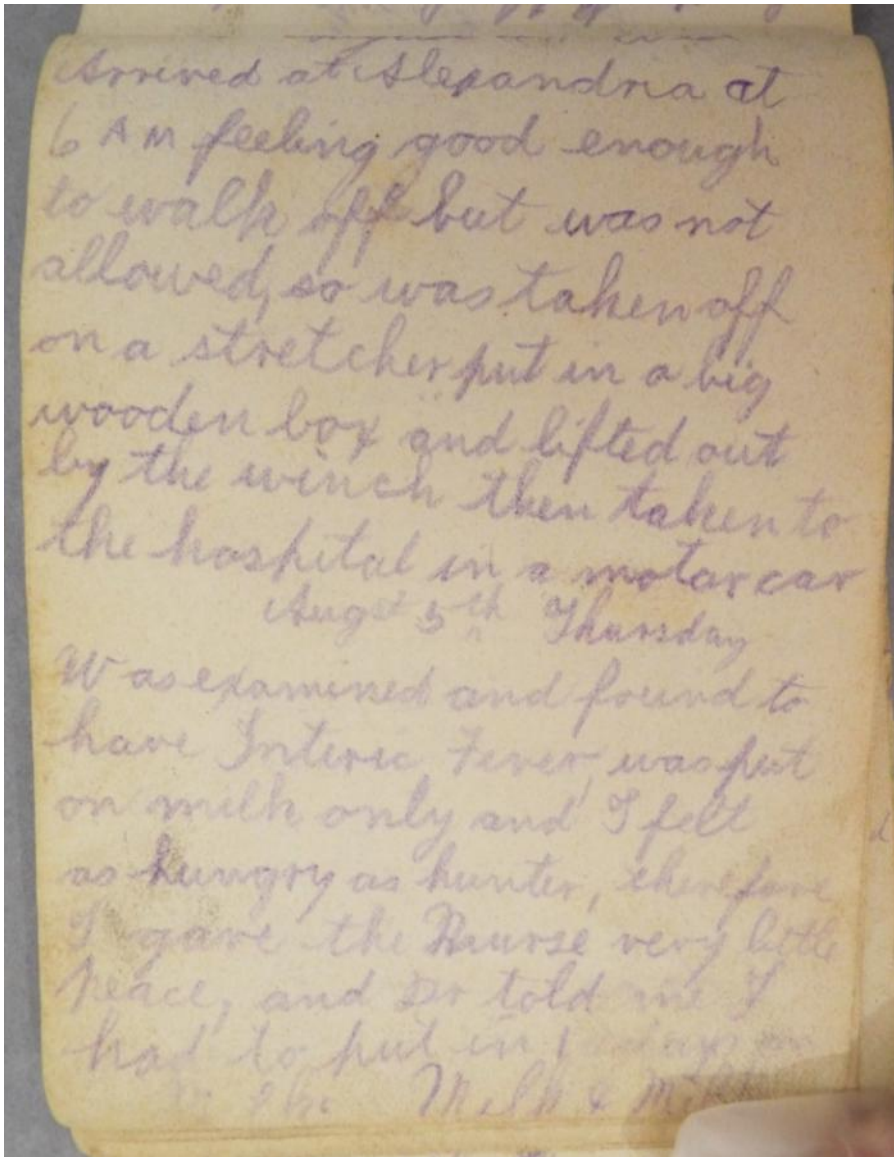 Arrived at Alexandria at
6 AM feeling good enough
to walk off but was not
allowed, so was taken off
on a stretcher put in a big
wooden box and lifted out
by the winch then taken to
the hospital in a motor car
Augst 5th Thursday
Was examined and found to
have Interic Fever, was put
on milk only and I felt
as hungry as hunter, therefore
I gave the Nurse very little
peace, and told me I
had to put in days on
Milk & Milk